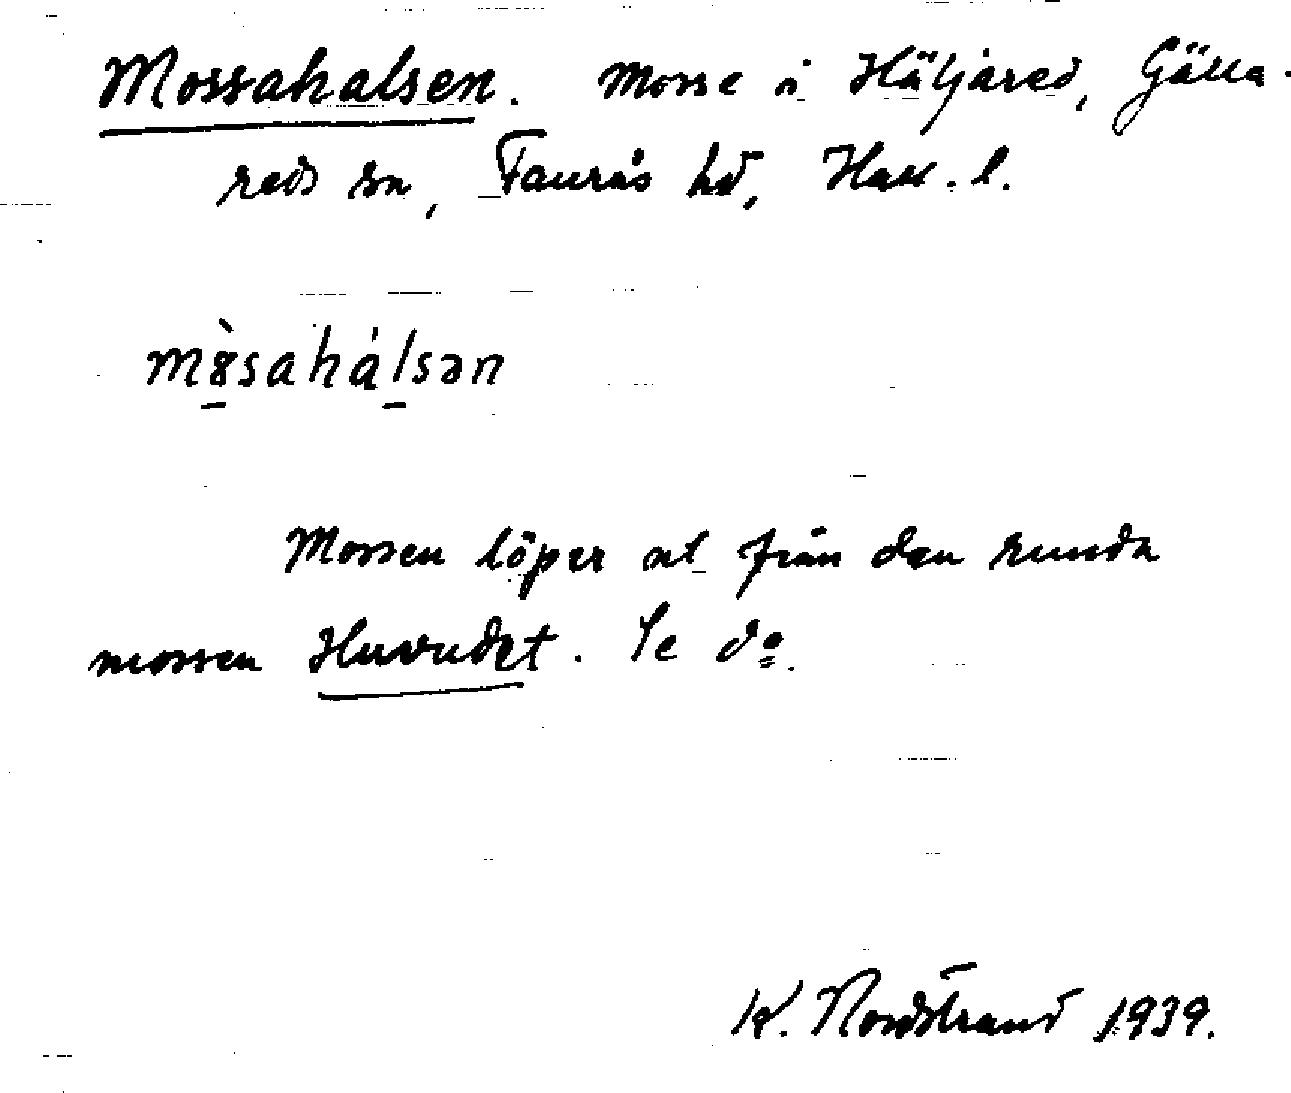 Mossahalsen. Mosse i Häljared, Gälla-
reds sn, Faurås hd, Hall. l.
mȣ̀sahálsən
Mossen löper ut från den runda
mossen Huvudet. Se do.
K. Nordstrand 1939.